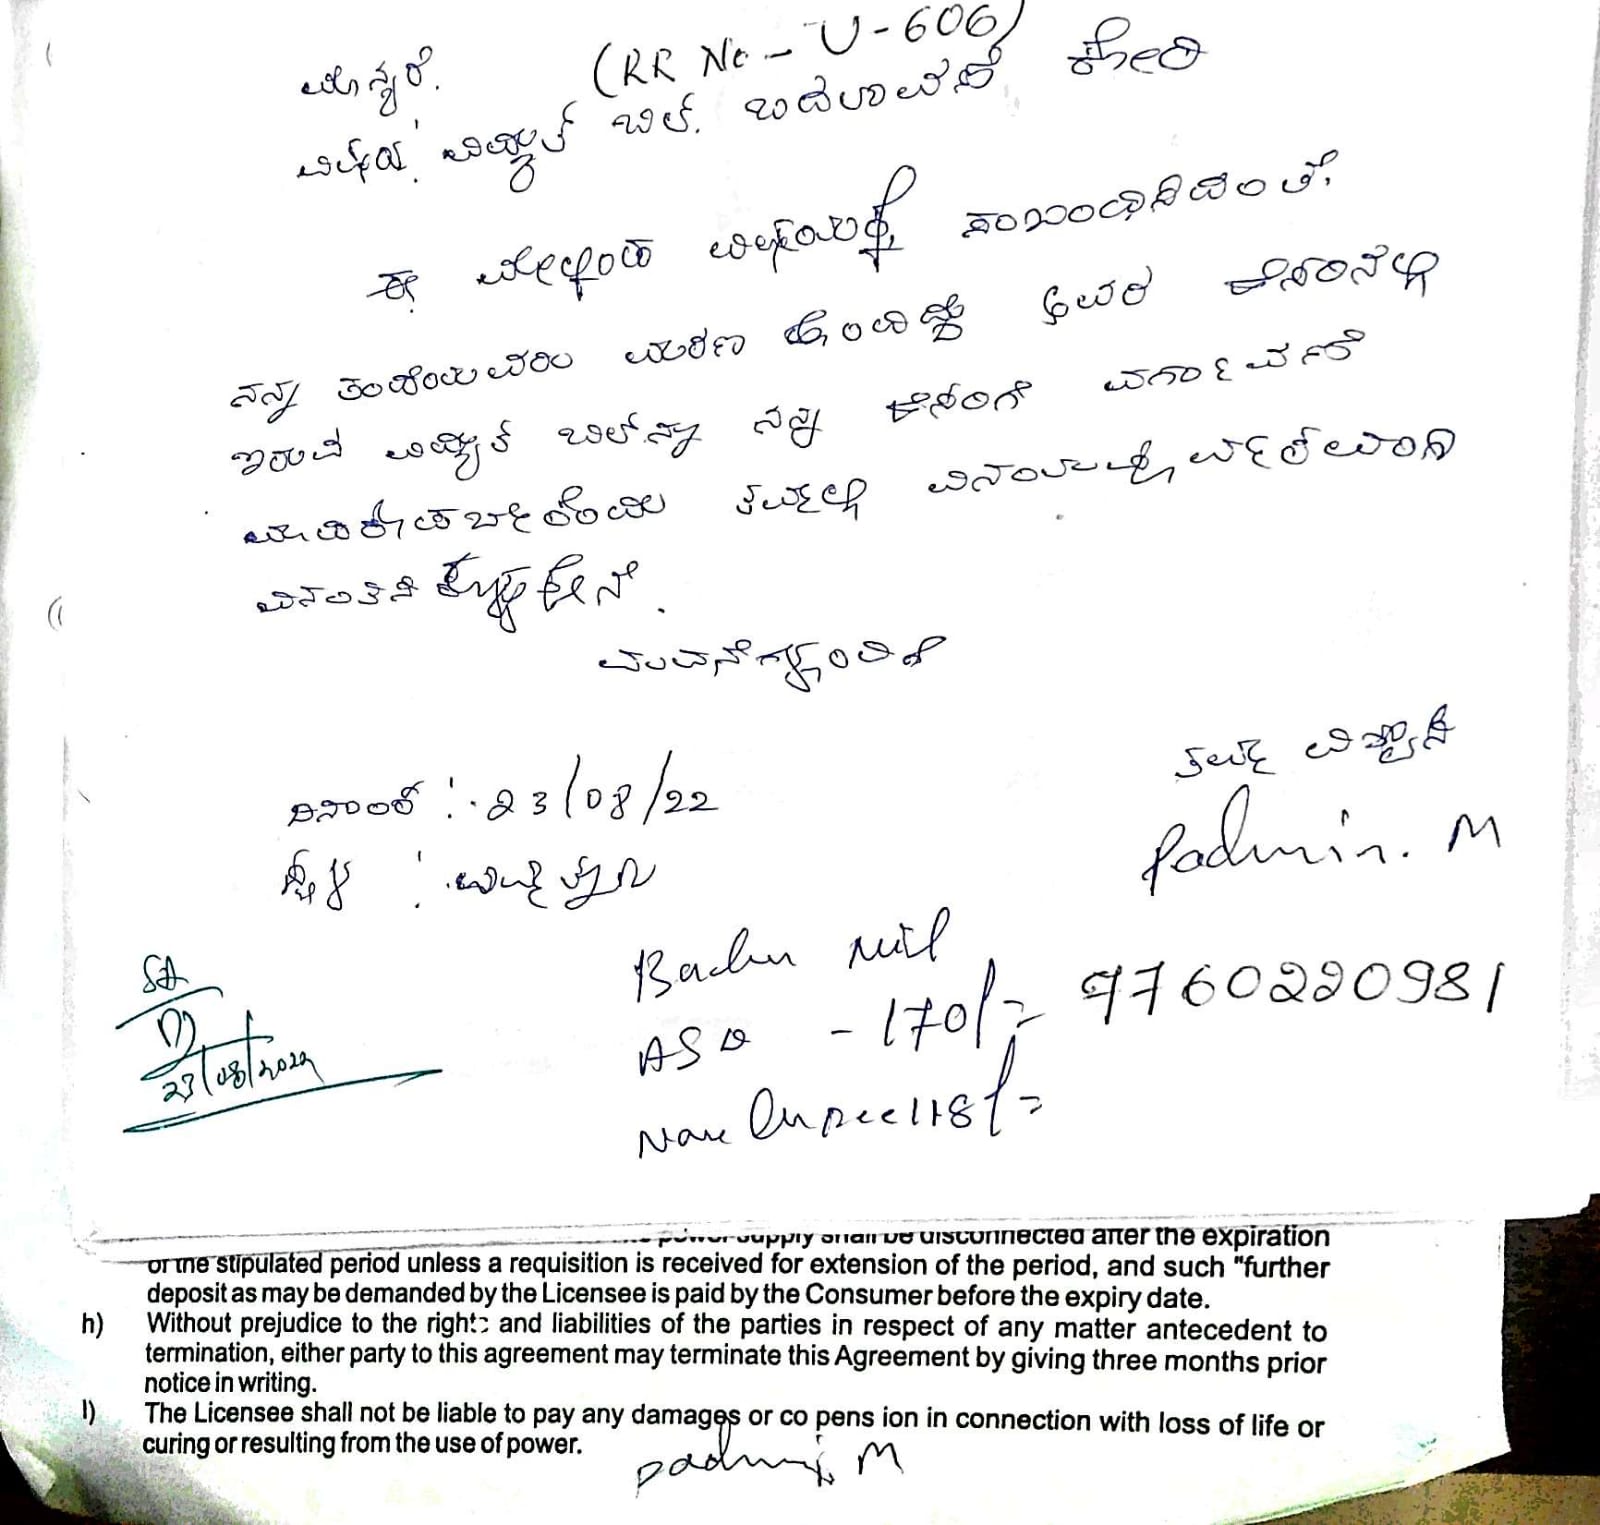 ಮಾನ್ಯರೆ. (RR No - U-606)
ವಿಷಯ: ವಿದ್ಯುತ್ ಬಿಲ್. ಬದಲಾವಣೆ ಕೋರಿ
ಈ ಮೇಲ್ಕಂಡ ವಿಷಯಕ್ಕೆ ಸಂಬಂಧಿಸಿದಂತೆ,
ನನ್ನ ತಂದೆಯವರು ಮರಣ ಹೊಂದಿದ್ದು ಅವರ ಹೆಸರಿನಲ್ಲಿ
ಇರುವ ವಿದ್ಯುತ್ ಬಿಲ್‌ನ್ನು ನನ್ನ ಹೆಸರಿಗೆ ವರ್ಗಾವಣೆ
ಮಾಡಿಕೊಡಬೇಕೆಂದು ತಮ್ಮಲ್ಲಿ
ವಂದನೆಗಳೊಂದಿಗೆ
ತಮ್ಮ ವಿಶ್ವಾಸಿ
ದಿನಾಂಕ : 23/08/22
Padmin. M
ಸ್ಥಳ :
- 170/= 9760220981
23/08/2022
power supply shall be disconnected after the expiration
of the stipulated period unless a requisition is received for extension of the period, and such "further
deposit as may be demanded by the Licensee is paid by the Consumer before the expiry date.
h) Without prejudice to the rights and liabilities of the parties in respect of any matter antecedent to
termination, either party to this agreement may terminate this Agreement by giving three months prior
notice in writing.
I) The Licensee shall not be liable to pay any damages or co pens ion in connection with loss of life or
curing or resulting from the use of power.
padmini M